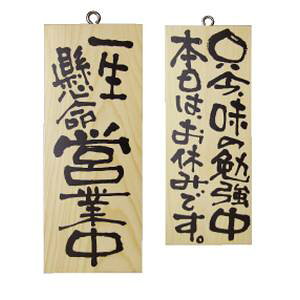 一生
懸命
営業中
只今、味の勉強中
本日はお休みです。